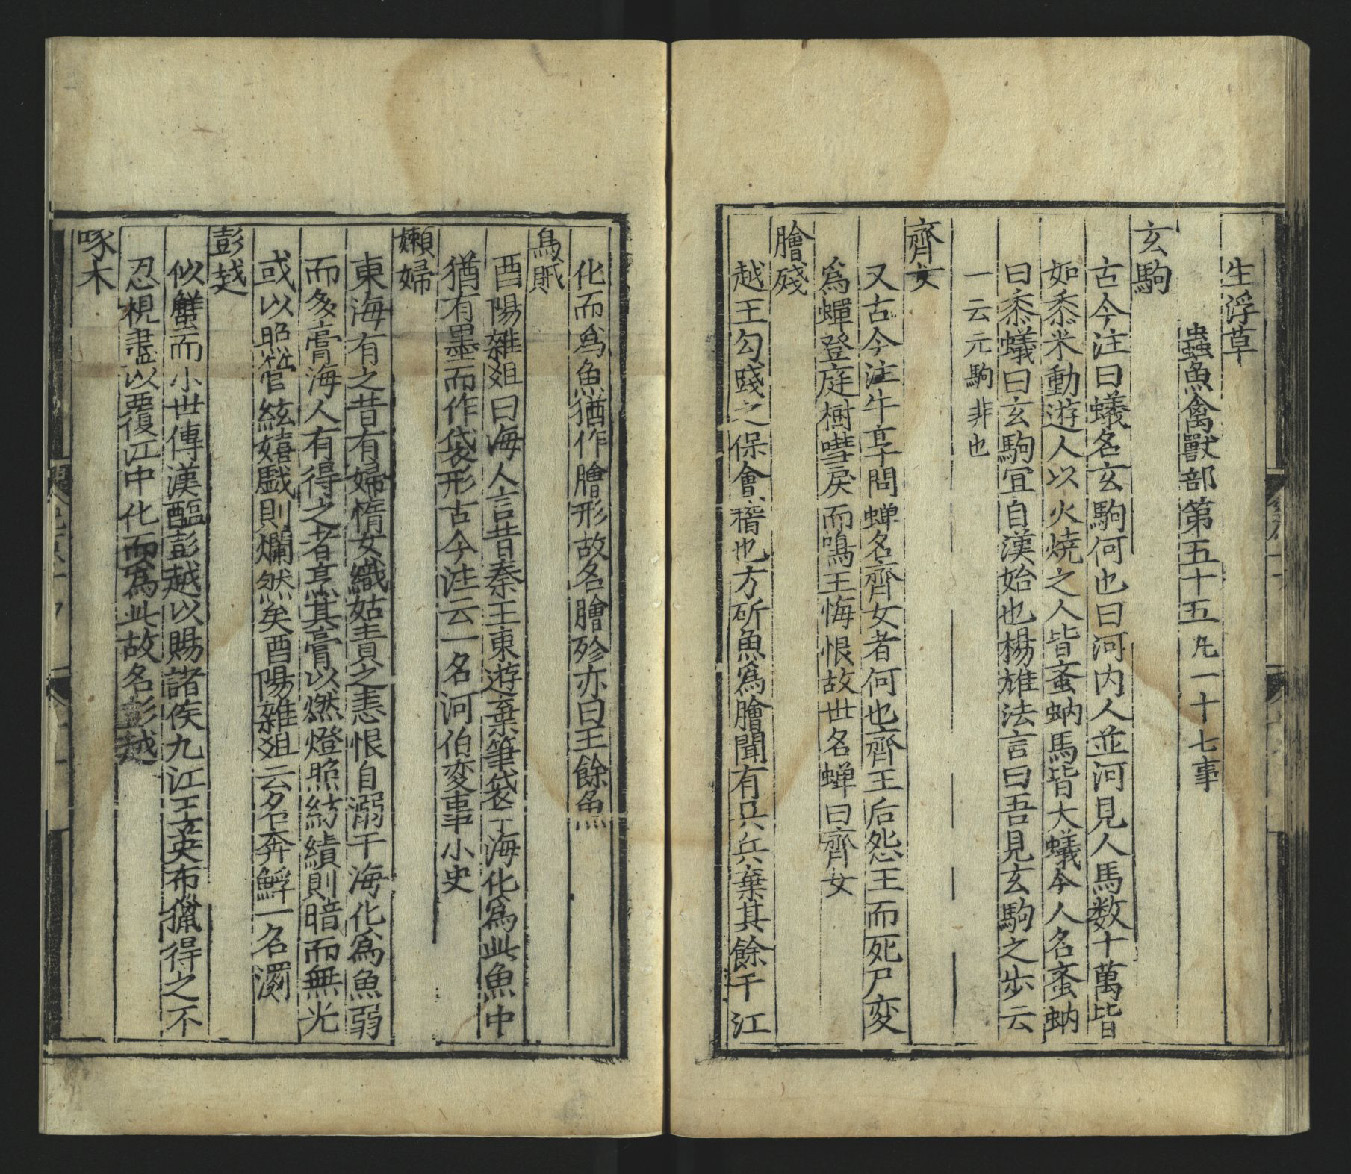 生浮草
蟲魚禽獸部第五十五 凢一十七事
玄駒
古今注曰蟻名玄駒何也曰河内人並河見人馬数十萬皆
如黍米動遊人以火燒之人皆蚉蚋馬皆大蟻今人名蚉蚋
曰黍蟻曰玄駒宜自漢始也楊雄法言曰吾見玄駒之步云
一云元駒非也
齊女
又古今注牛亨問蝉名齊女者何也齊王后怨王而死尸変
爲蟬登庭樹嘒戻而鳴王悔恨故世名蝉曰齊女
膾殘
越王勾踐之保會稽也方斫魚爲膾聞有吳兵棄其餘于江
化而爲魚猶作膾形故名膾殘亦曰王餘魚
烏賊
酉陽雜俎曰海人言昔秦王東遊棄筆袋于海化爲此魚中
猶有墨而作袋形古今注云一名河伯変事小史
嬾婦
東海有之昔有婦惰女織姑責之恚恨自溺于海化爲魚弱
而多膏海人有得之者烹其膏以燃燈照紡績則暗而無光
或以照筦絃嬉戲則爛然矣酉陽雜俎云名奔𩶗一名瀱
彭越
似蟹而小世傳漢醢彭越以賜諸侯九江王英布獵得之不
忍視盡以覆江中化而爲此故名彭越
啄木